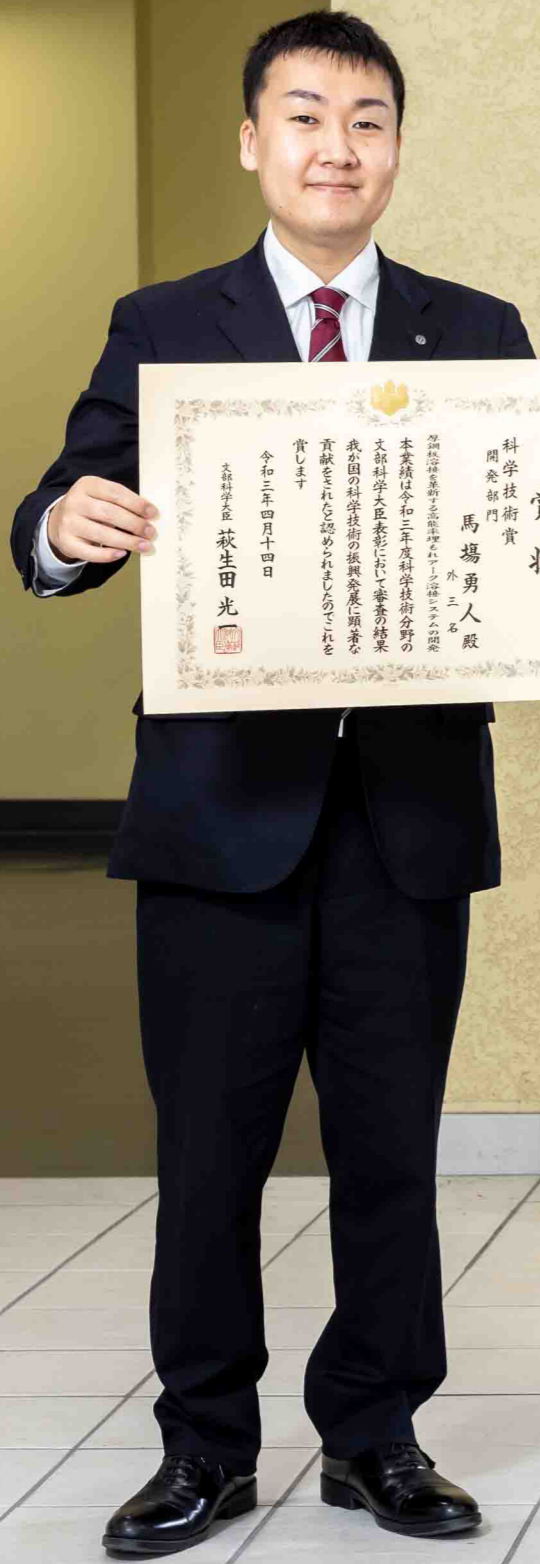 賞状
科学技術賞
開発部門
馬場勇人殿
外三名
厚鋼板溶接を革新する高能率埋もれアーク溶接システムの開発
本業績は令和三年度科学技術分野の
文部科学大臣表彰において審査の結果
我が国の科学技術の振興発展に顕著な
貢献をされたと認められましたのでこれを
賞します
令和三年四月十四日
文部科学大臣 萩生田光一